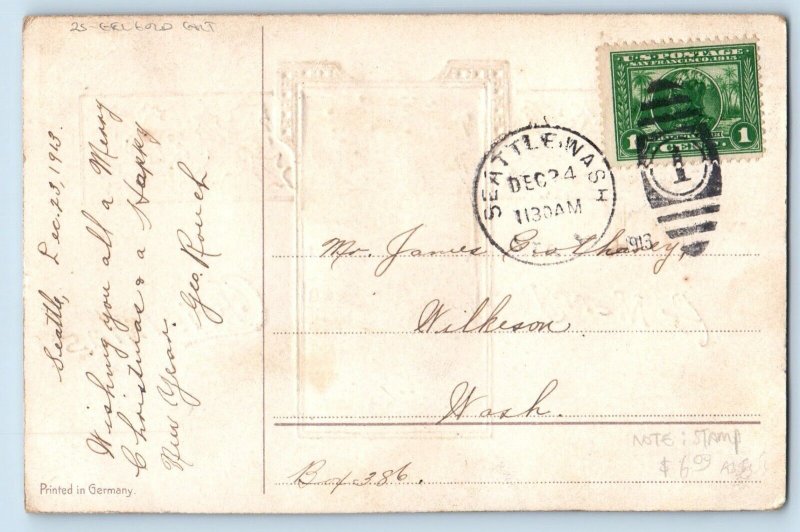 Seattle, Dec. 23, 1913.
Wishing you all a Merry
Christmas & a Happy
New Year.
Geo Rouch
Printed in Germany.
U.S. POSTAGE
SAN FRANCISCO 1915
1 CENT 1
SEATTLE, WASH
DEC 24
1130AM
1913
1
Mr. James Geo Chaney,
Wilkeson
Wash.
Box 386.
NOTE: STAMP
$ 6.09